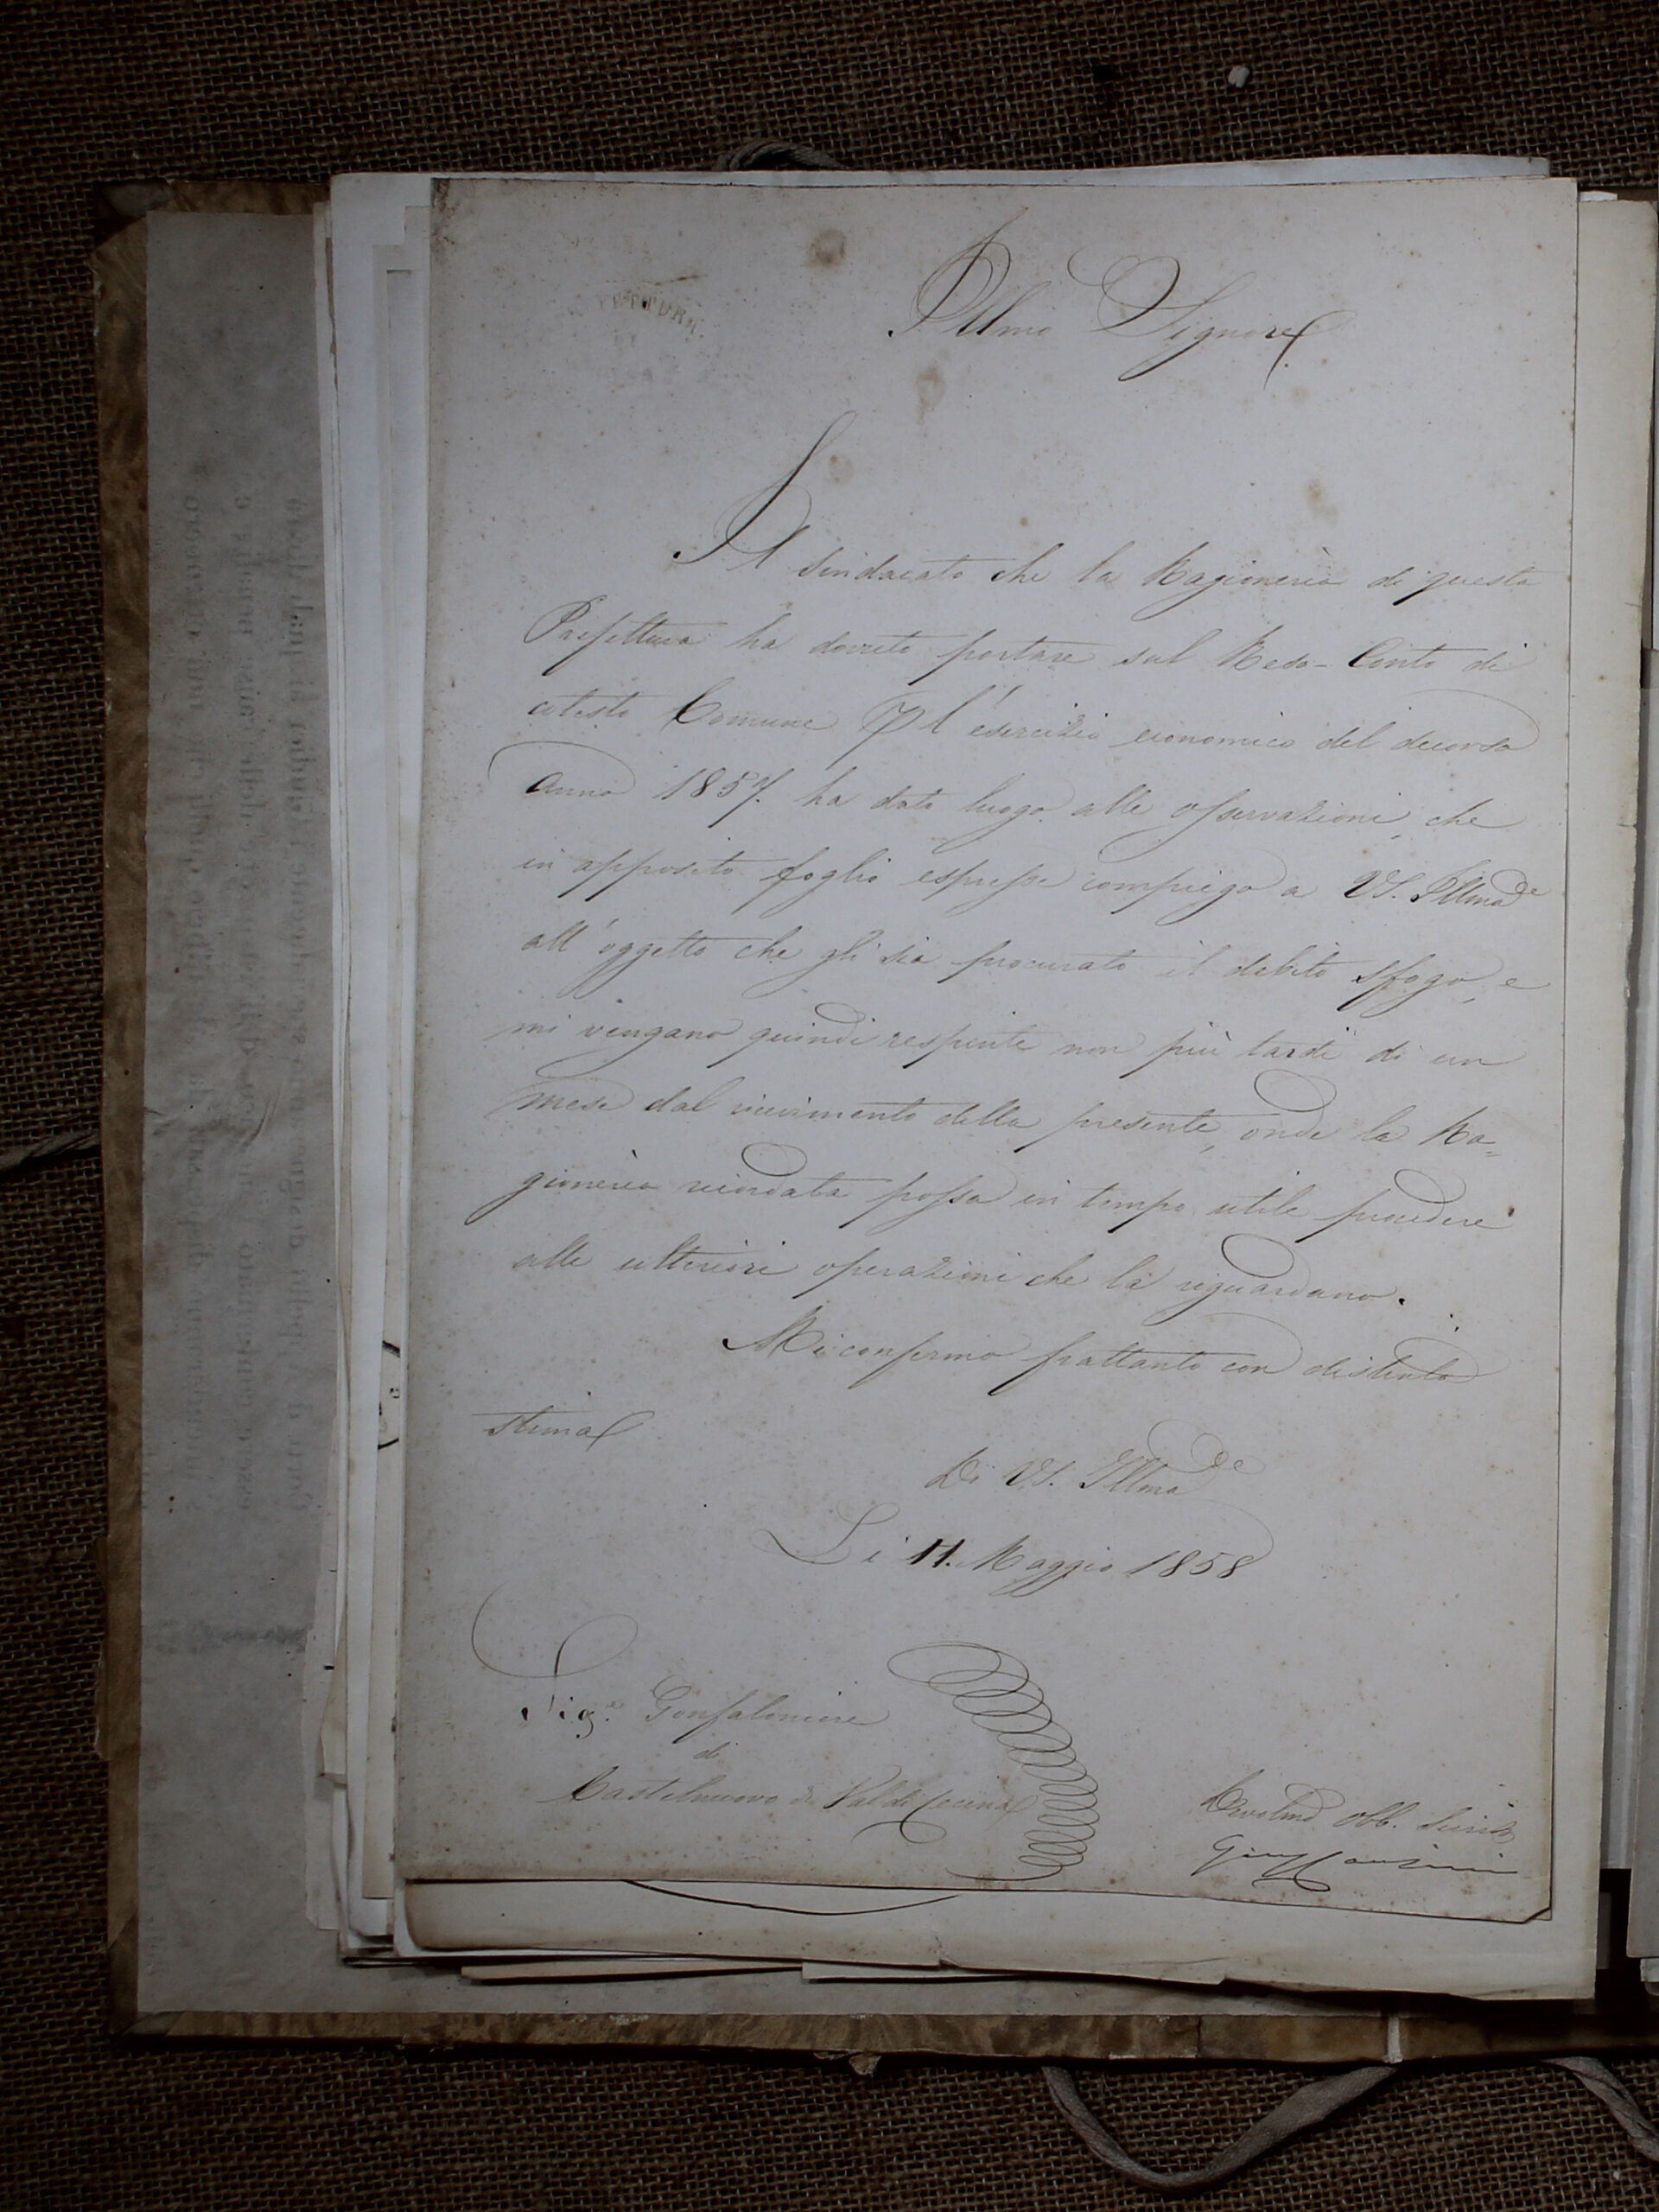 PREFETTURA
DI
Illmo Signore
Il sindacato che la Ragioneria di questa
Prefettura ha dovuto portare sul Reso-Conto di
cotesto Comune p l'esercizio economico del decorso
anno 1857. ha dato luogo alle osservazioni, che
in apposito foglio espresse compiego a VS. Illma
all'oggetto che gli sia procurato il debito sfogo, e
mi vengano quindi respinte non più tardi di un
mese dal ricevimento della presente, onde la Ra=
gioneria ricordata possa in tempo utile procedere
alle ulteriori operazioni che la riguardano.
Mi confermo frattanto con distinta
stima
Di VS. Illma
Li 11. Maggio 1858
Sig.e Gonfaloniere
di
Castelnuovo di Val di Cecina
Devotmo Obb. Servit